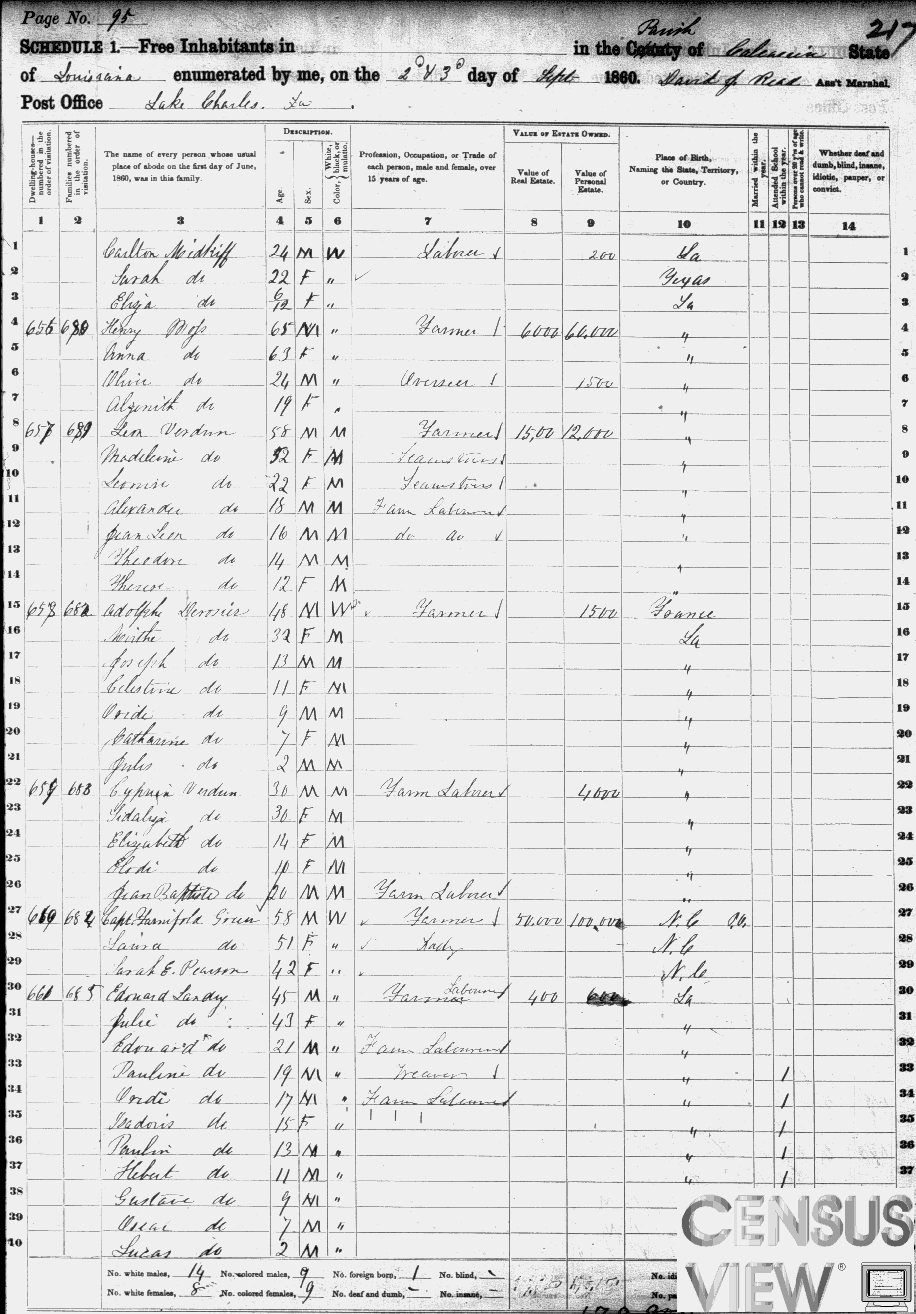 Page No. 95
217
SCHEDULE 1.—Free Inhabitants in in the County Parish of Calcasieu State
of Louisiana enumerated by me, on the 2d & 3d day of Sept 1860. David J. Reid Ass't Marshal.
Post Office Lake Charles. La.
DESCRIPTION. VALUE OF ESTATE OWNED.
Dwelling-houses—numbered in the order of visitation. Families numbered in the order of visitation. The name of every person whose usual place of abode on the first day of June, 1860, was in this family. Age. Sex. Color, White, black, or mulatto. Profession, Occupation, or Trade of each person, male and female, over 15 years of age. Value of Real Estate. Value of Personal Estate. Place of Birth, Naming the State, Territory, or Country. Married within the year. Attended School within the year. Persons over 20 y'rs of age who cannot read & write. Whether deaf and dumb, blind, insane, idiotic, pauper, or convict.
1 2 3 4 5 6 7 8 9 10 11 12 13 14
1 Carlton Midkiff 24 M W Laborer 200 La 1
2 Sarah do 22 F " Texas 2
3 Eliza do 6/12 F " La 3
4 656 680 Henry Moss 65 M " Farmer 6000 60,000 " 4
5 Anna do 63 F " " 5
6 Olivir do 24 M " Overseer 1500 " 6
7 Alzenith do 19 F " " 7
8 657 681 Leon Verdun 58 M M Farmer 15,00 12,000 " 8
9 Madeleine do 52 F M Seamstress " 9
10 Leonise do 22 F M Seamstress " 10
11 Alexander do 18 M M Farm Labourer " 11
12 Jean Leon do 16 M M do do " 12
13 Theodore do 14 M M " 13
14 Therese do 12 F M " 14
15 658 682 Adolphe Derosier 48 M W Farmer 1500 France 15
16 do 32 F M La 16
17 Joseph do 13 M M " 17
18 Celestine do 11 F M " 18
19 Ovide do 9 M M " 19
20 Catharine do 7 F M " 20
21 Jules do 2 M M " 21
22 659 683 Cyprien Verdun 30 M M Farm Laborer 4000 " 22
23 Sidalize do 30 F M " 23
24 Elizabeth do 14 F M " 24
25 Elodi do 10 F M " 25
26 Jean Baptiste do 20 M M Farm Laborer " 26
27 660 684 Capt. Farnifold Green 58 M W Farmer 50,000 100,000 N.C 27
28 Laura do 51 F " Lady N.C 28
29 Sarah E. Pearson 42 F " N.C 29
30 661 685 Edouard Landry 45 M " Farmer Labourer 400 600 La 30
31 Julie do 43 F " " 31
32 Edouard do 21 M " Farm Labourer " 32
33 Pauline do 19 M " Weaver " 1 33
34 Ovide do 17 M " Farm Labourer " 1 34
35 Isadoris do 15 F " " 1 35
36 Paulin do 13 M " " 1 36
37 Hebert do 11 M " " 1 37
38 Gustave do 9 M "
39 Oscar do 7 M "
40 Lucas do 2 M "
No. white males, 14 No. colored males, 9 No. foreign born, 1 No. blind, - No. idi
No. white females, 8 No. colored females, 9 No. deaf and dumb, - No. insane, - No. pa
CENSUS
VIEW®